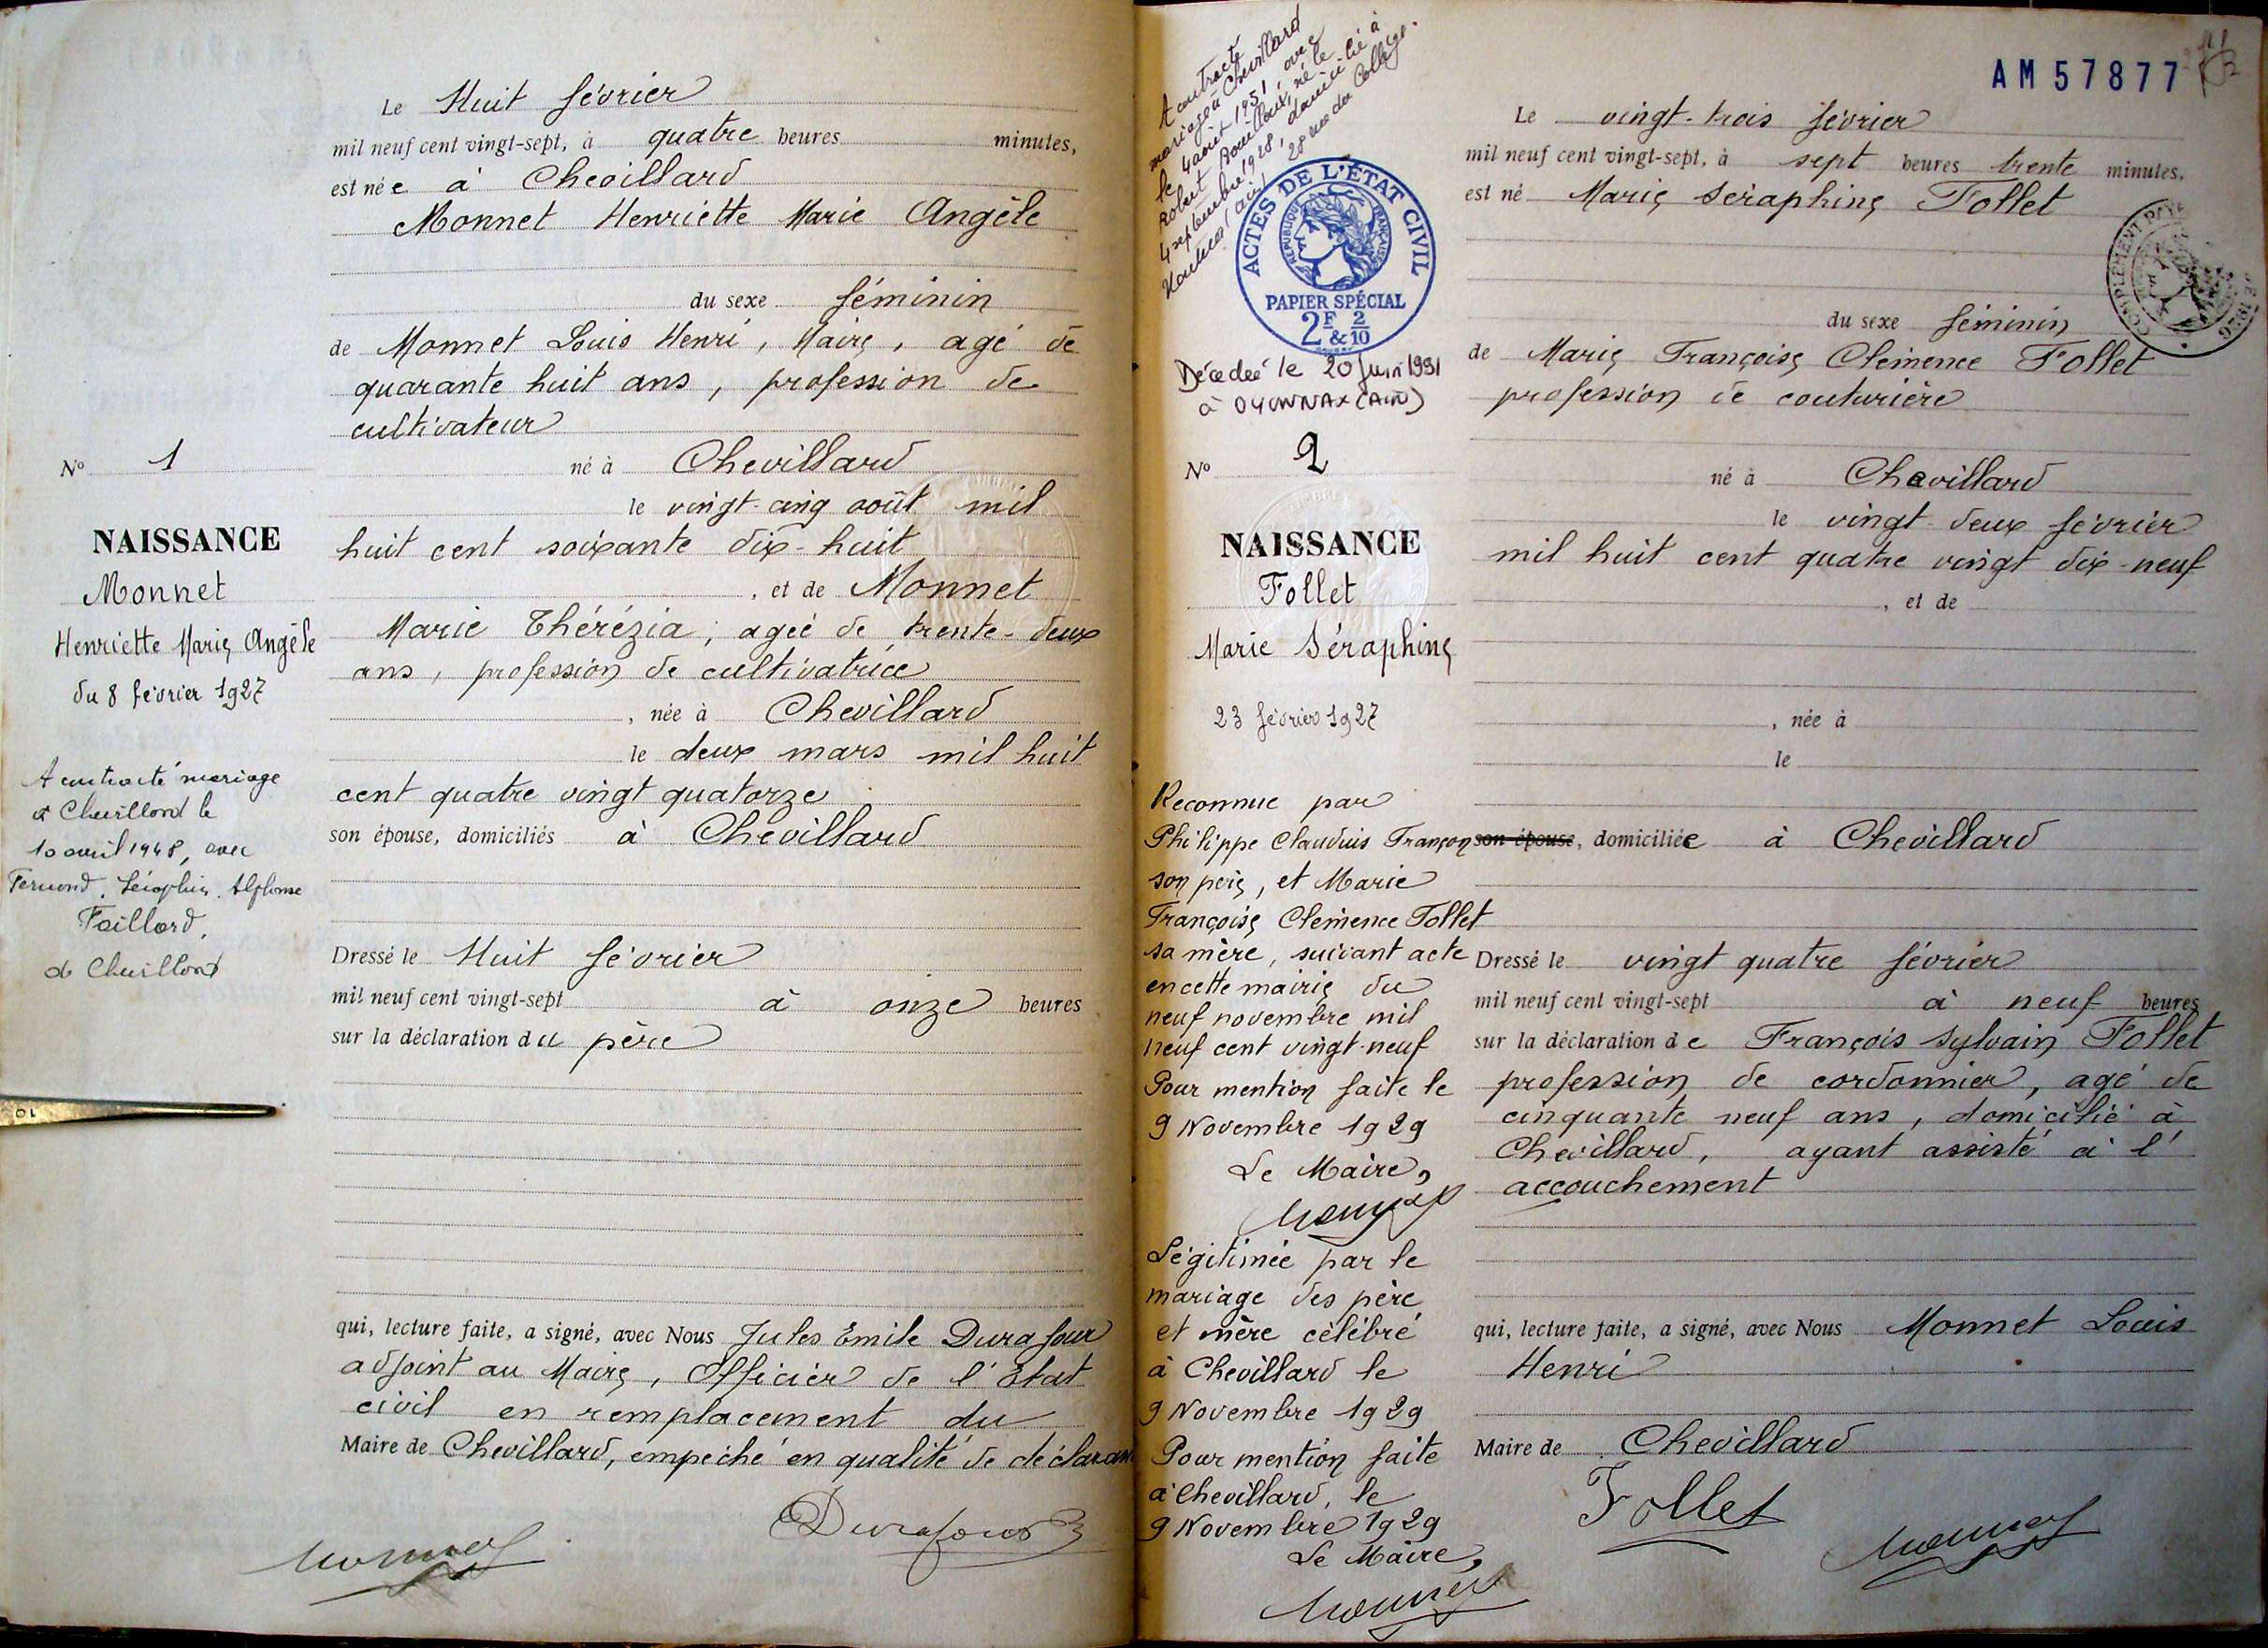 Le Huit février
mil neuf cent vingt-sept, à quatre heures minutes,
est née à Chevillard
Monnet Henriette Marie Angèle
du sexe féminin
de Monnet Louis Henri, Maire, agé de
quarante huit ans, profession de
cultivateur
né à Chevillard
le vingt-cinq août mil
huit cent soixante dix-huit
, et de Monnet
Marie Thérézia, agée de trente-deux
ans, profession de cultivatrice
, née à Chevillard
le deux mars mil huit
cent quatre vingt quatorze
son épouse, domiciliés à Chevillard
Dressé le Huit février
mil neuf cent vingt-sept à onze heures
sur la déclaration du père
qui, lecture faite, a signé, avec Nous Jules Emile Durafour
adjoint au Maire, Officier de l'Etat
civil en remplacement du
Maire de Chevillard, empéché en qualité de déclarant
Monnet
Durafour
N° 1
NAISSANCE
Monnet
Henriette Marie Angèle
du 8 février 1927
A contracté mariage
à Chevillard le
10 avril 1948, avec
Fernand. Séraphin. Alphonse
Faillard,
de Chevillard
A contracté
mariage à Chevillard
le 4 août 1951, avec
Robert né le
4 septembre 1928, domicilié à
28 rue du Collège.
ACTES DE L'ÉTAT CIVIL
RÉPUBLIQUE FRANÇAISE
PAPIER SPÉCIAL
2F & 2/10
Décédée le 20 Juin 1991
à OYONNAX (AIN)
N° 2
NAISSANCE
Follet
Marie Séraphine
23 février 1927
Reconnue par
Philippe Claudius Françon
son père, et Marie
Françoise Clémence Follet
sa mère, suivant acte
en cette mairie du
neuf novembre mil
neuf cent vingt-neuf
Pour mention faite le
9 Novembre 1929
Le Maire,
Monnet
Légitimée par le
mariage des père
et mère célébré
à Chevillard le
9 Novembre 1929
Pour mention faite
à Chevillard, le
9 Novembre 1929
Le Maire,
Monnet
AM 57877
Le vingt-trois février
mil neuf cent vingt-sept, à sept heures trente minutes,
est né Marie Séraphine Follet
COMPLÉMENT PAYÉ
1926
du sexe féminin
de Marie Françoise Clémence Follet
profession de couturière
né à Chevillard
le vingt-deux février
mil huit cent quatre vingt dix-neuf
, et de
, née à
le
son épouse, domiciliée à Chevillard
Dressé le vingt quatre février
mil neuf cent vingt-sept à neuf heures
sur la déclaration de François Sylvain Follet
profession de cordonnier, agé de
cinquante neuf ans, domicilié à
Chevillard, ayant assisté à l'
accouchement
qui, lecture faite, a signé, avec Nous Monnet Louis
Henri
Maire de Chevillard
Follet
Monnet